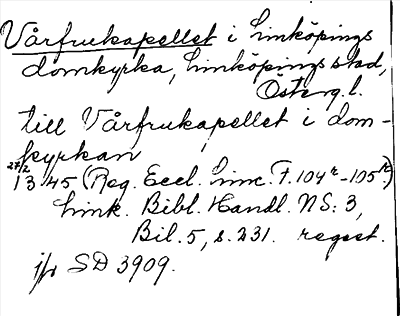 Vårfrukapellet i Linköpings
domkyrka, Linköpings stad,
Österg. l.
till Vårfrukapellet i dom-
kyrkan
27/2
1345 (Reg. Eccl. Linc. F. 104r-105r)
Link. Bibl. Handl. NS: 3,
Bil. 5, s. 231. regest.
jfr SD 3909.